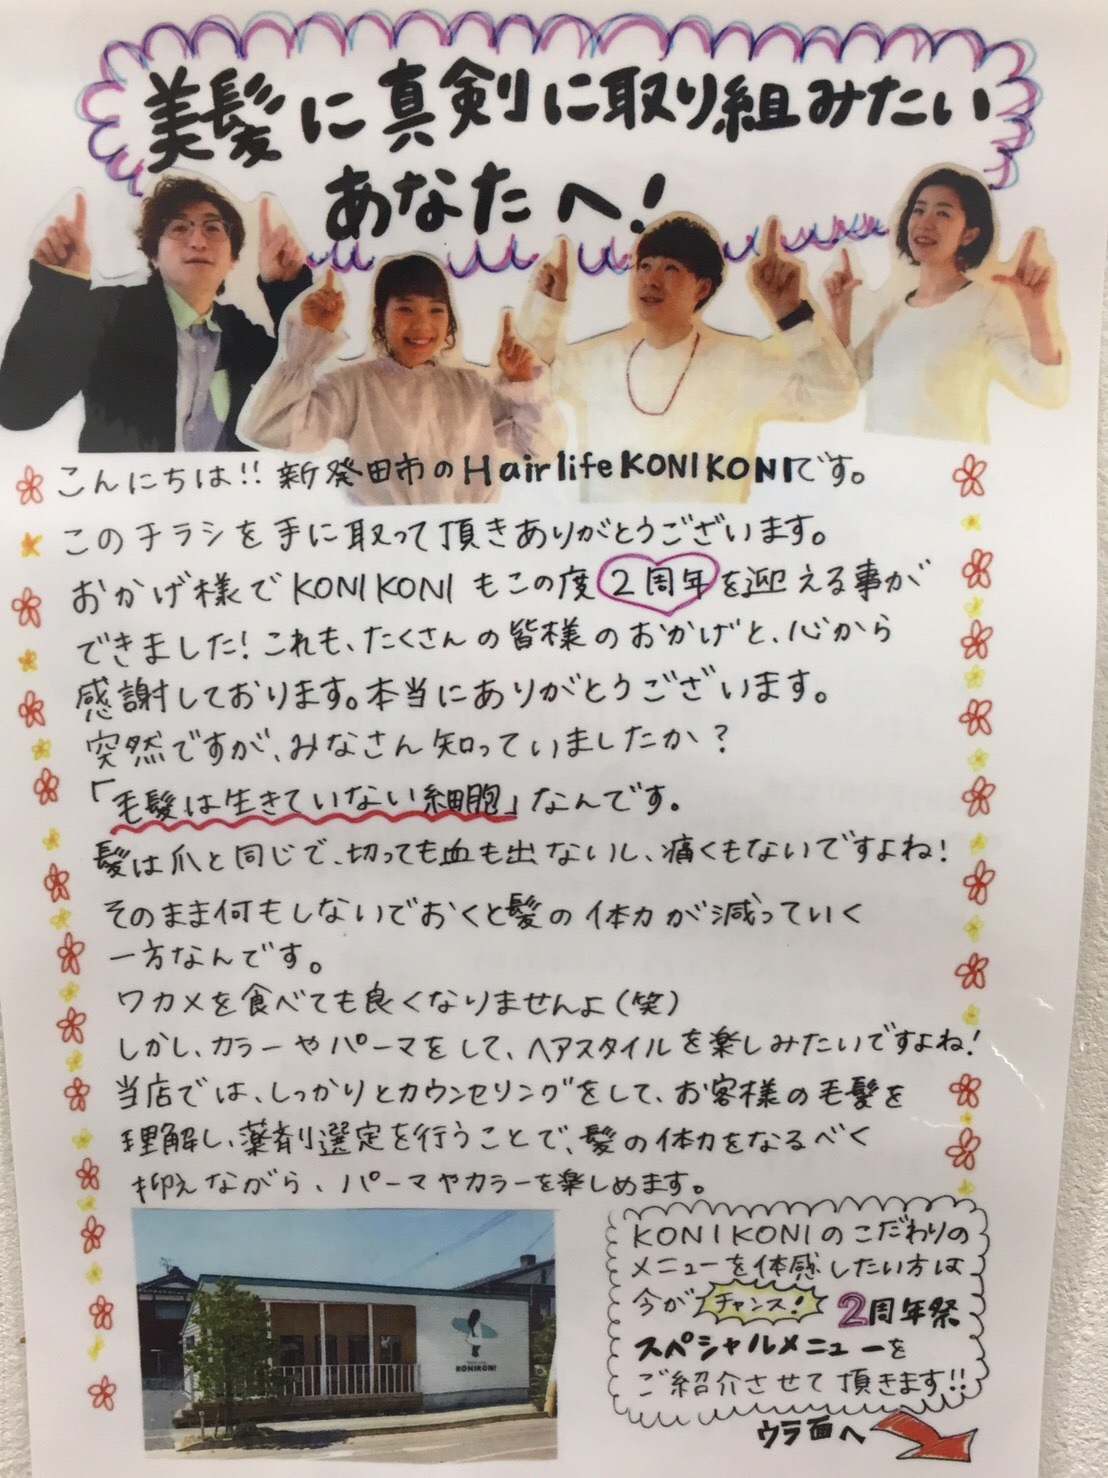 美髪に真剣に取り組みたい
あなたへ!
こんにちは!!新発田市のHair life KONIKONIです。
このチラシを手に取って頂きありがとうございます。
おかげ様でKONIKONIもこの度2周年を迎える事が
できました!これも、たくさんの皆様のおかげと、心から
感謝しております。本当にありがとうございます。
突然ですが、みなさん知っていましたか?
「毛髪は生きていない細胞」なんです。
髪は爪と同じで、切っても血も出ないし、痛くもないですよね!
そのまま何もしないでおくと髪の体力が減っていく
一方なんです。
ワカメを食べても良くなりませんよ(笑)
しかし、カラーやパーマをして、ヘアスタイルを楽しみたいですよね!
当店では、しっかりとカウンセリングをして、お客様の毛髪を
理解し、薬剤選定を行うことで、髪の体力をなるべく
抑えながら、パーマやカラーを楽しめます。
KONIKONI
KONIKONIのこだわりの
メニューを体感したい方は
今がチャンス!2周年祭
スペシャルメニューを
ご紹介させて頂きます!!
ウラ面へ